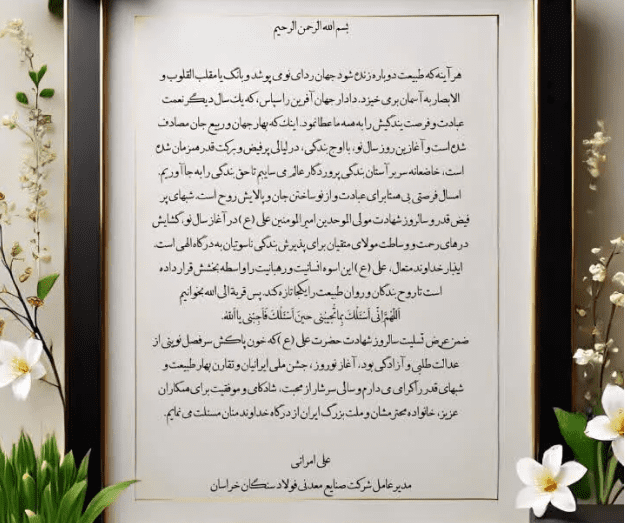 بسم الله الرحمن الرحیم
هر آینه که طبیعت دوباره زنده شود جهان ردای نو می پوشد و بانگ یا مقلب القلوب و
الابصار به آسمان برمی خیزد. دادار جهان آفرین را سپاس، که یک سال دیگر نعمت
عبادت و فرصت بندگیش را به همه ما عطا نمود. اینک که بهار جهان و ربیع جان مصادف
شده است و آغازین روز سال نو، با اوج بندگی، در لیالی پر فیض و برکت قدر همزمان شده
است، خاضعانه سر بر آستان بندگی پروردگار عالم می ساییم تا حق بندگی را به جا آوریم.
امسال فرصتی بی همتا برای عبادت و از نو ساختن جان و پالایش روح است. شبهای پر
فیض قدر و سالروز شهادت مولی الموحدین امیرالمومنین علی (ع) در آغاز سال نو، گشایش
درهای رحمت و وساطت مولای متقیان برای پذیرش بندگی ناسوتیان به درگاه الهی است.
اینبار خداوند متعال، علی (ع) این اسوه انسانیت و رهبانیت را واسطه بخشش قرار داده
است تا روح بندگان و روان طبیعت را یکجا تازه کند. پس قربة الی الله بخوانیم
اَللّهُمَّ اِنّی اَسْئَلُكَ بِما تُجیبُنی حینَ اَسْئَلُكَ فَاَجِبْنی یا اَللّهُ.
ضمن عرض تسلیت سالروز شهادت حضرت علی (ع) که خون پاکش سرفصل نوینی از
عدالت طلبی و آزادگی بود، آغاز نوروز، جشن ملی ایرانیان و تقارن بهار طبیعت و
شبهای قدر را گرامی می دارم و سالی سرشار از محبت، شادکامی و موفقیت برای همکاران
عزیز، خانواده محترمشان و ملت بزرگ ایران از درگاه خداوند منان مسئلت می نمایم.
علی امرائی
مدیرعامل شرکت صنایع معدنی فولاد سنگان خراسان